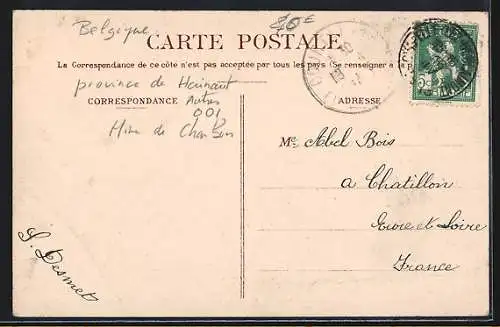 Belgique
20€
CARTE POSTALE
La Correspondance de ce côté n'est pas acceptée par tous les pays (Se renseigner à la p
province de Hainaut
CORRESPONDANCE
Autres
001
Mine de Charbon
ADRESSE
Mr Abel Bois
a Chatillon
Eure et Loire
France
S. Desmet
5